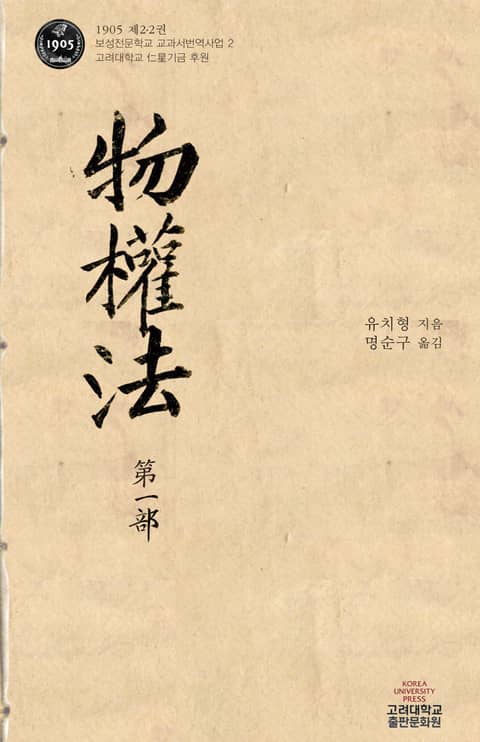 1905 제2·2권
1905
보성전문학교 교과서번역사업 2
고려대학교 仁星기금 후원
物權法
第一部
유치형 지음
명순구 옮김
KOREA
UNIVERSITY
PRESS
고려대학교
출판문화원